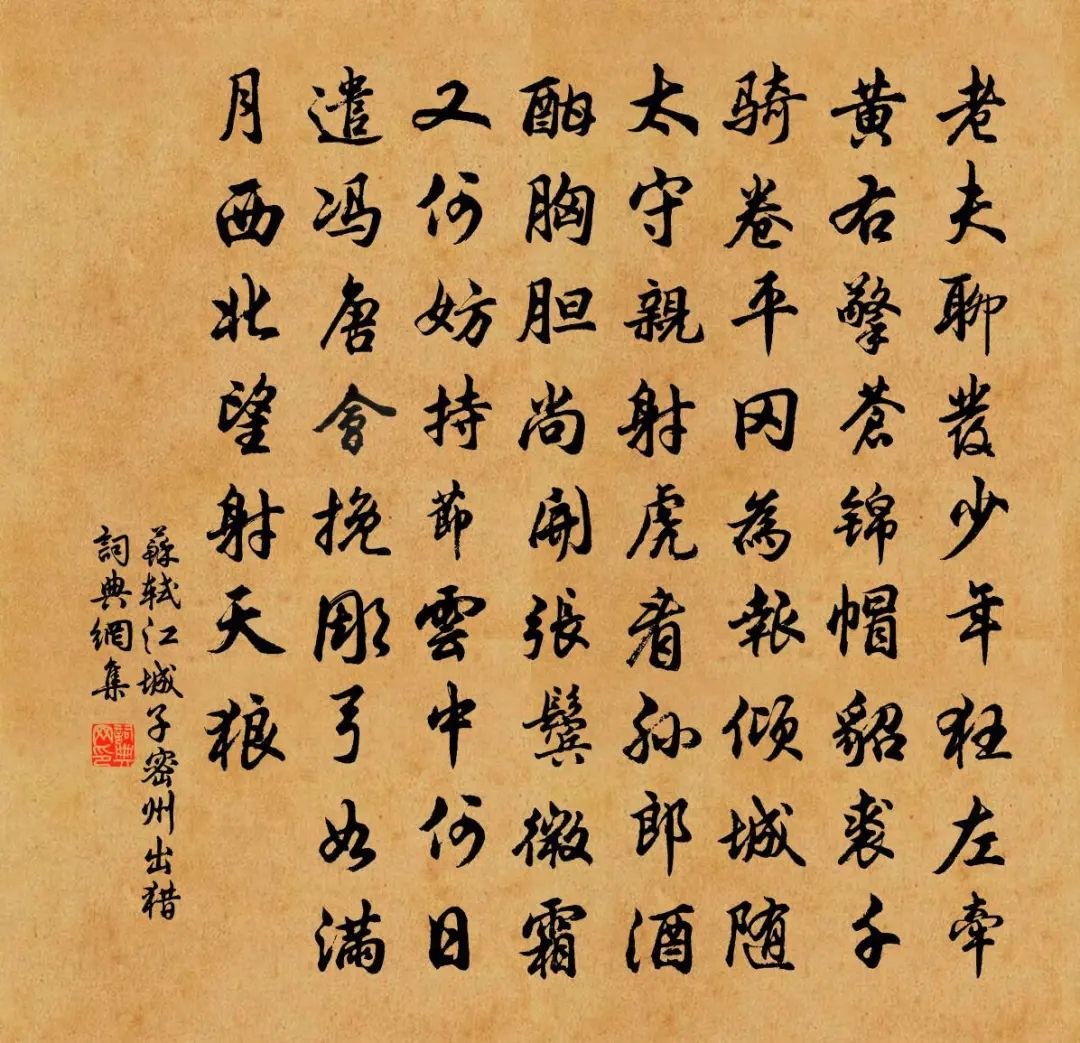 老夫聊發少年狂左牽
黄右擎蒼锦帽貂裘千
骑卷平冈為報倾城随
太守親射虎看孙郎酒
酣胸胆尚開張鬓微霜
又何妨持節雲中何日
遣冯唐會挽雕弓如满
月西北望射天狼
蘇轼江城子密州出猎
詞典網集